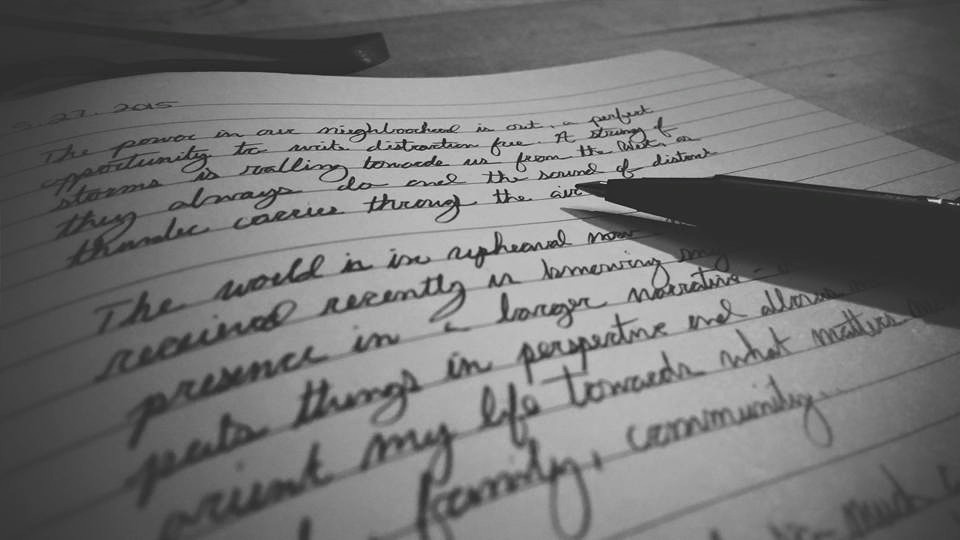 5.27.2015
The power in our neighborhood is out, a perfect
opportunity to write distraction free. A string of
storms is rolling towards us from the West, as
they always do and the sound of distant
thunder carries through the air
The world is in upheaval now
received recently is knowing my
presence in a larger narrative
puts things in perspective and allows
orient my life towards what matters
family, community.
much